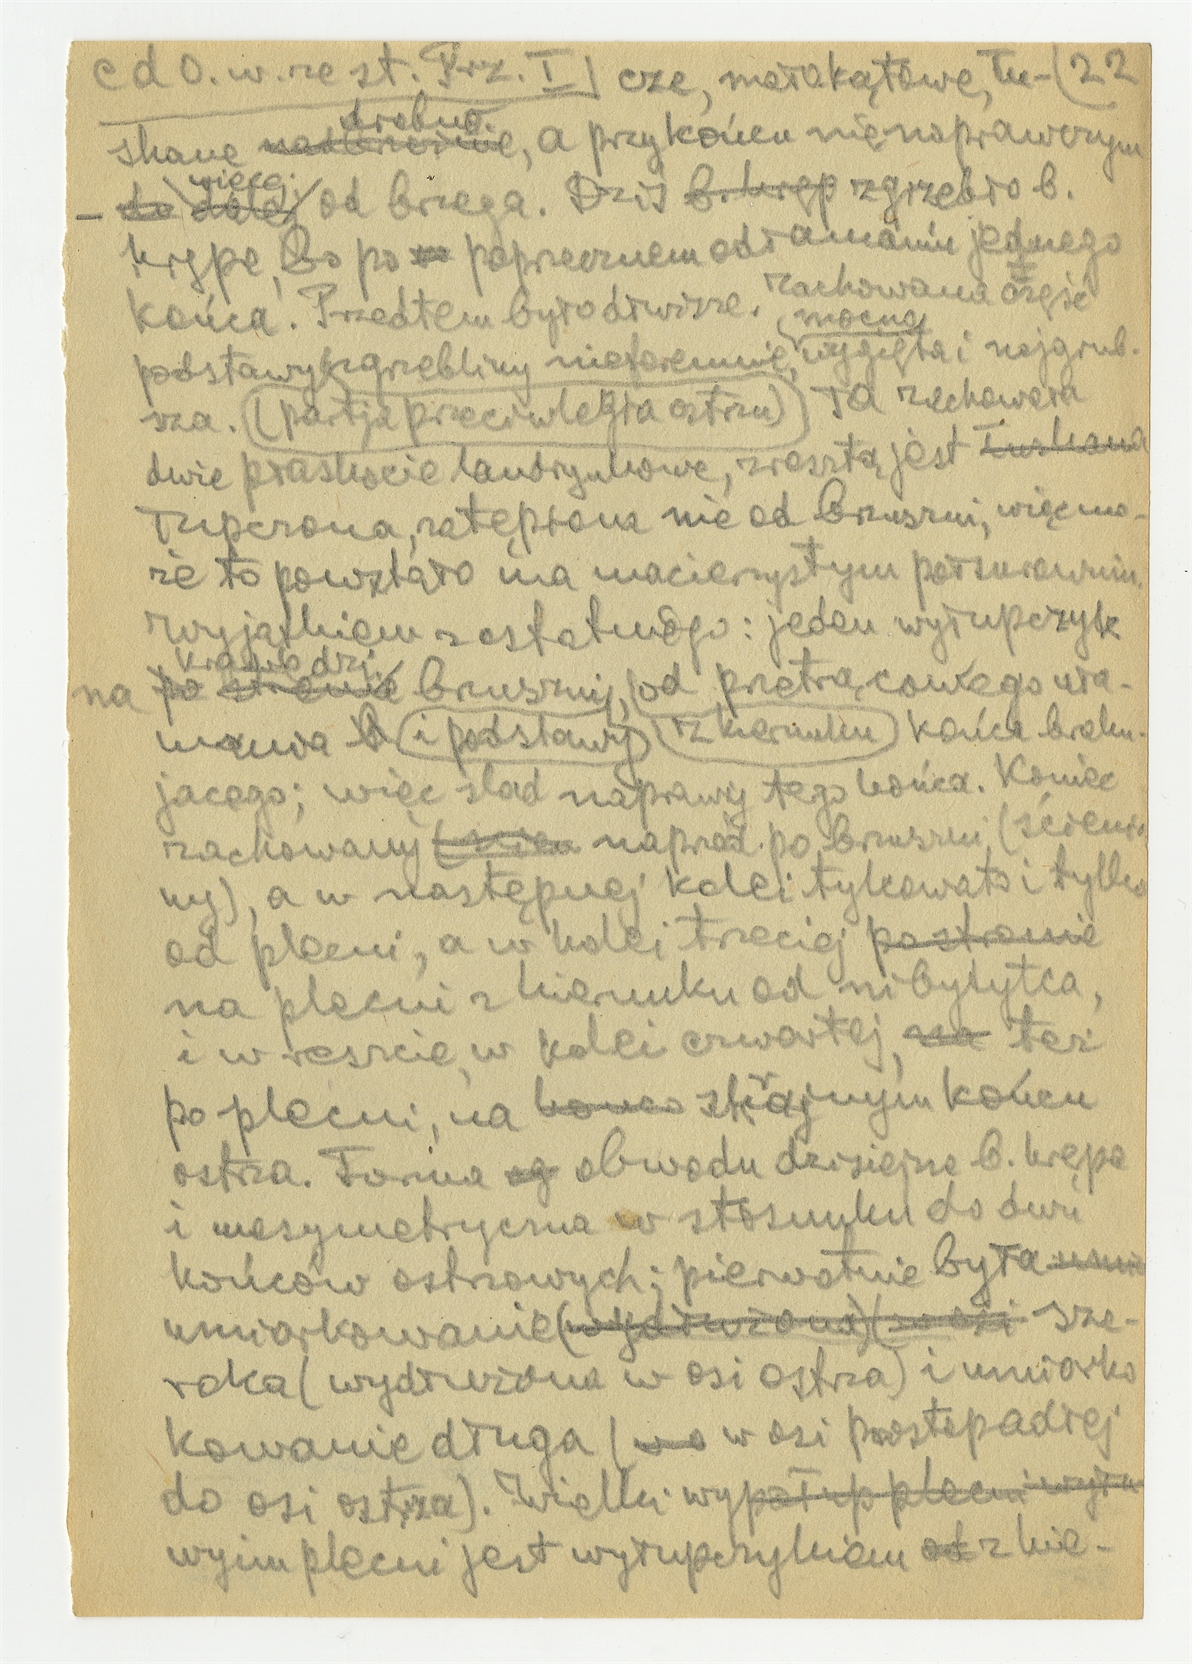 c d O. w. ze st. Prz. I) cze, małokątowe, łu- (22
drobno
skane, a przy końcu nienaprawczym
więcej
– od brzega. Dziś b. kręp zgrzebło b.
krępe, bo po poprzecznem odłamaniu jednego
końca. Przedtem było dłuższe. Zachowana część
mocno
podstawy zgrzebliny nieforemnie, wygięta i najgrub-
sza. (partja przeciwległa ostrzu) Ta zachowała
dwie płaskocie, zresztą jest łuskana
łupczona, zatępiona nie od brzuszni, więc mo-
że to powstało na macierzystym półsurowniu.
Wyjątkiem z ostatniego: jeden wyłupczyk
krawędzi
na po stronie brzusznij, od przetrąconego uła-
mania i podstawy z kierunku końca braku-
jącego; więc ślad naprawy tego końca. Koniec
zachowany naprzód po brzuszni (ścienio
ny), a w następnej kolei tylcowato i tylko
od plecni, a w kolei trzeciej po stronie
na plecni z kierunku od nibytylca,
i w reszcie, w kolei czwartej, na też
po plecni, na skrajnym końcu
ostrza. Forma obwodu dzisiejsza b. krępa
i niesymetryczna w stosunku do dwu
końców ostrzowych; pierwotnie była
umiarkowanie (wydłużona) (w osi sze-
roka (wydłużona w osi ostrza) i umiarko
kowanie długa (w osi prostopadłej
do osi ostrza). Wielki wypołup plecni
wyim plecni jest wyłupczykiem od z kie-